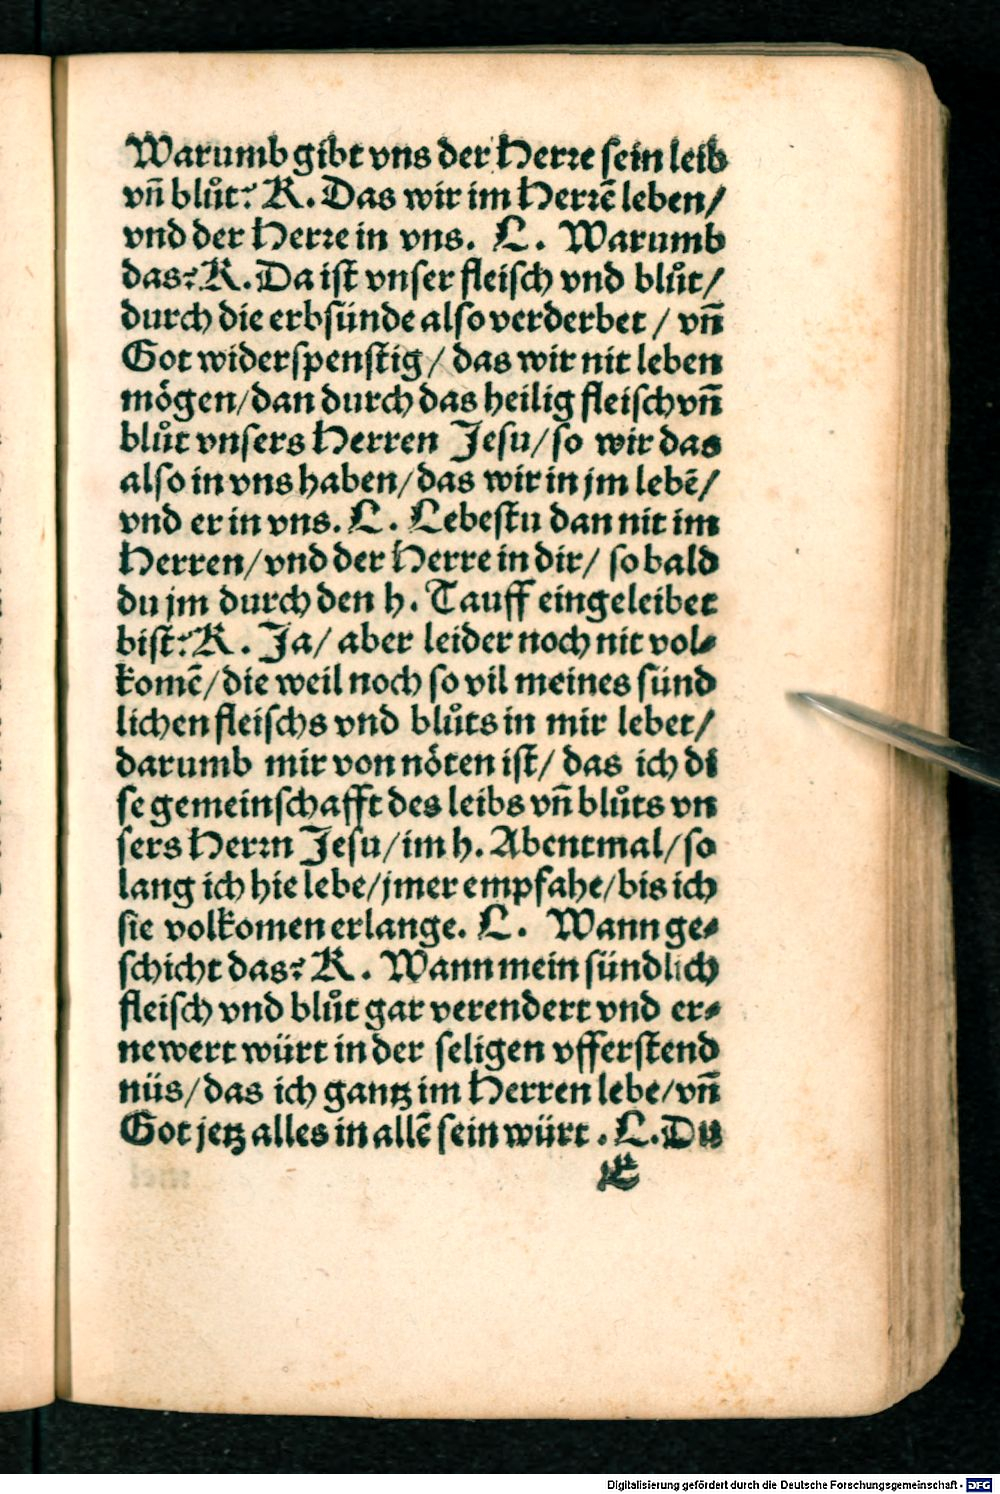 Warumb gibt vns der Herre sein leib
vn̄ blůt? K. Das wir im Herrē leben/
vnd der Herre in vns. L. Warumb
das? K. Da ist vnser fleisch vnd blůt/
durch die erbsünde also verderbet / vn̄
Got widerspenstig/ das wir nit leben
mögen/dan durch das heilig fleisch vn̄
blůt vnsers Herren Jesu/so wir das
also in vns haben/das wir in jm lebē/
vnd er in vns. L. Lebestu dan nit im
Herren/vnd der Herre in dir/ so bald
du jm durch den h. Tauff eingeleibet
bist? K. Ja/ aber leider noch nit vol⸗
komē/die weil noch so vil meines sünd
lichen fleischs vnd blůts in mir lebet/
darumb mir von nöten ist/ das ich di
se gemeinschafft des leibs vn̄ blůts vn
sers Herrn Jesu/im h. Abentmal/so
lang ich hie lebe/jmer empfahe/bis ich
sie volkomen erlange. L. Wann ge⸗
schicht das? K. Wann mein sündlich
fleisch vnd blůt gar verendert vnd er⸗
newert würt in der seligen vfferstend
nüs/das ich gantz im Herren lebe/vn̄
Got jetz alles in allē sein würt. L. Du
E
Digitalisierung gefördert durch die Deutsche Forschungsgemeinschaft - DFG